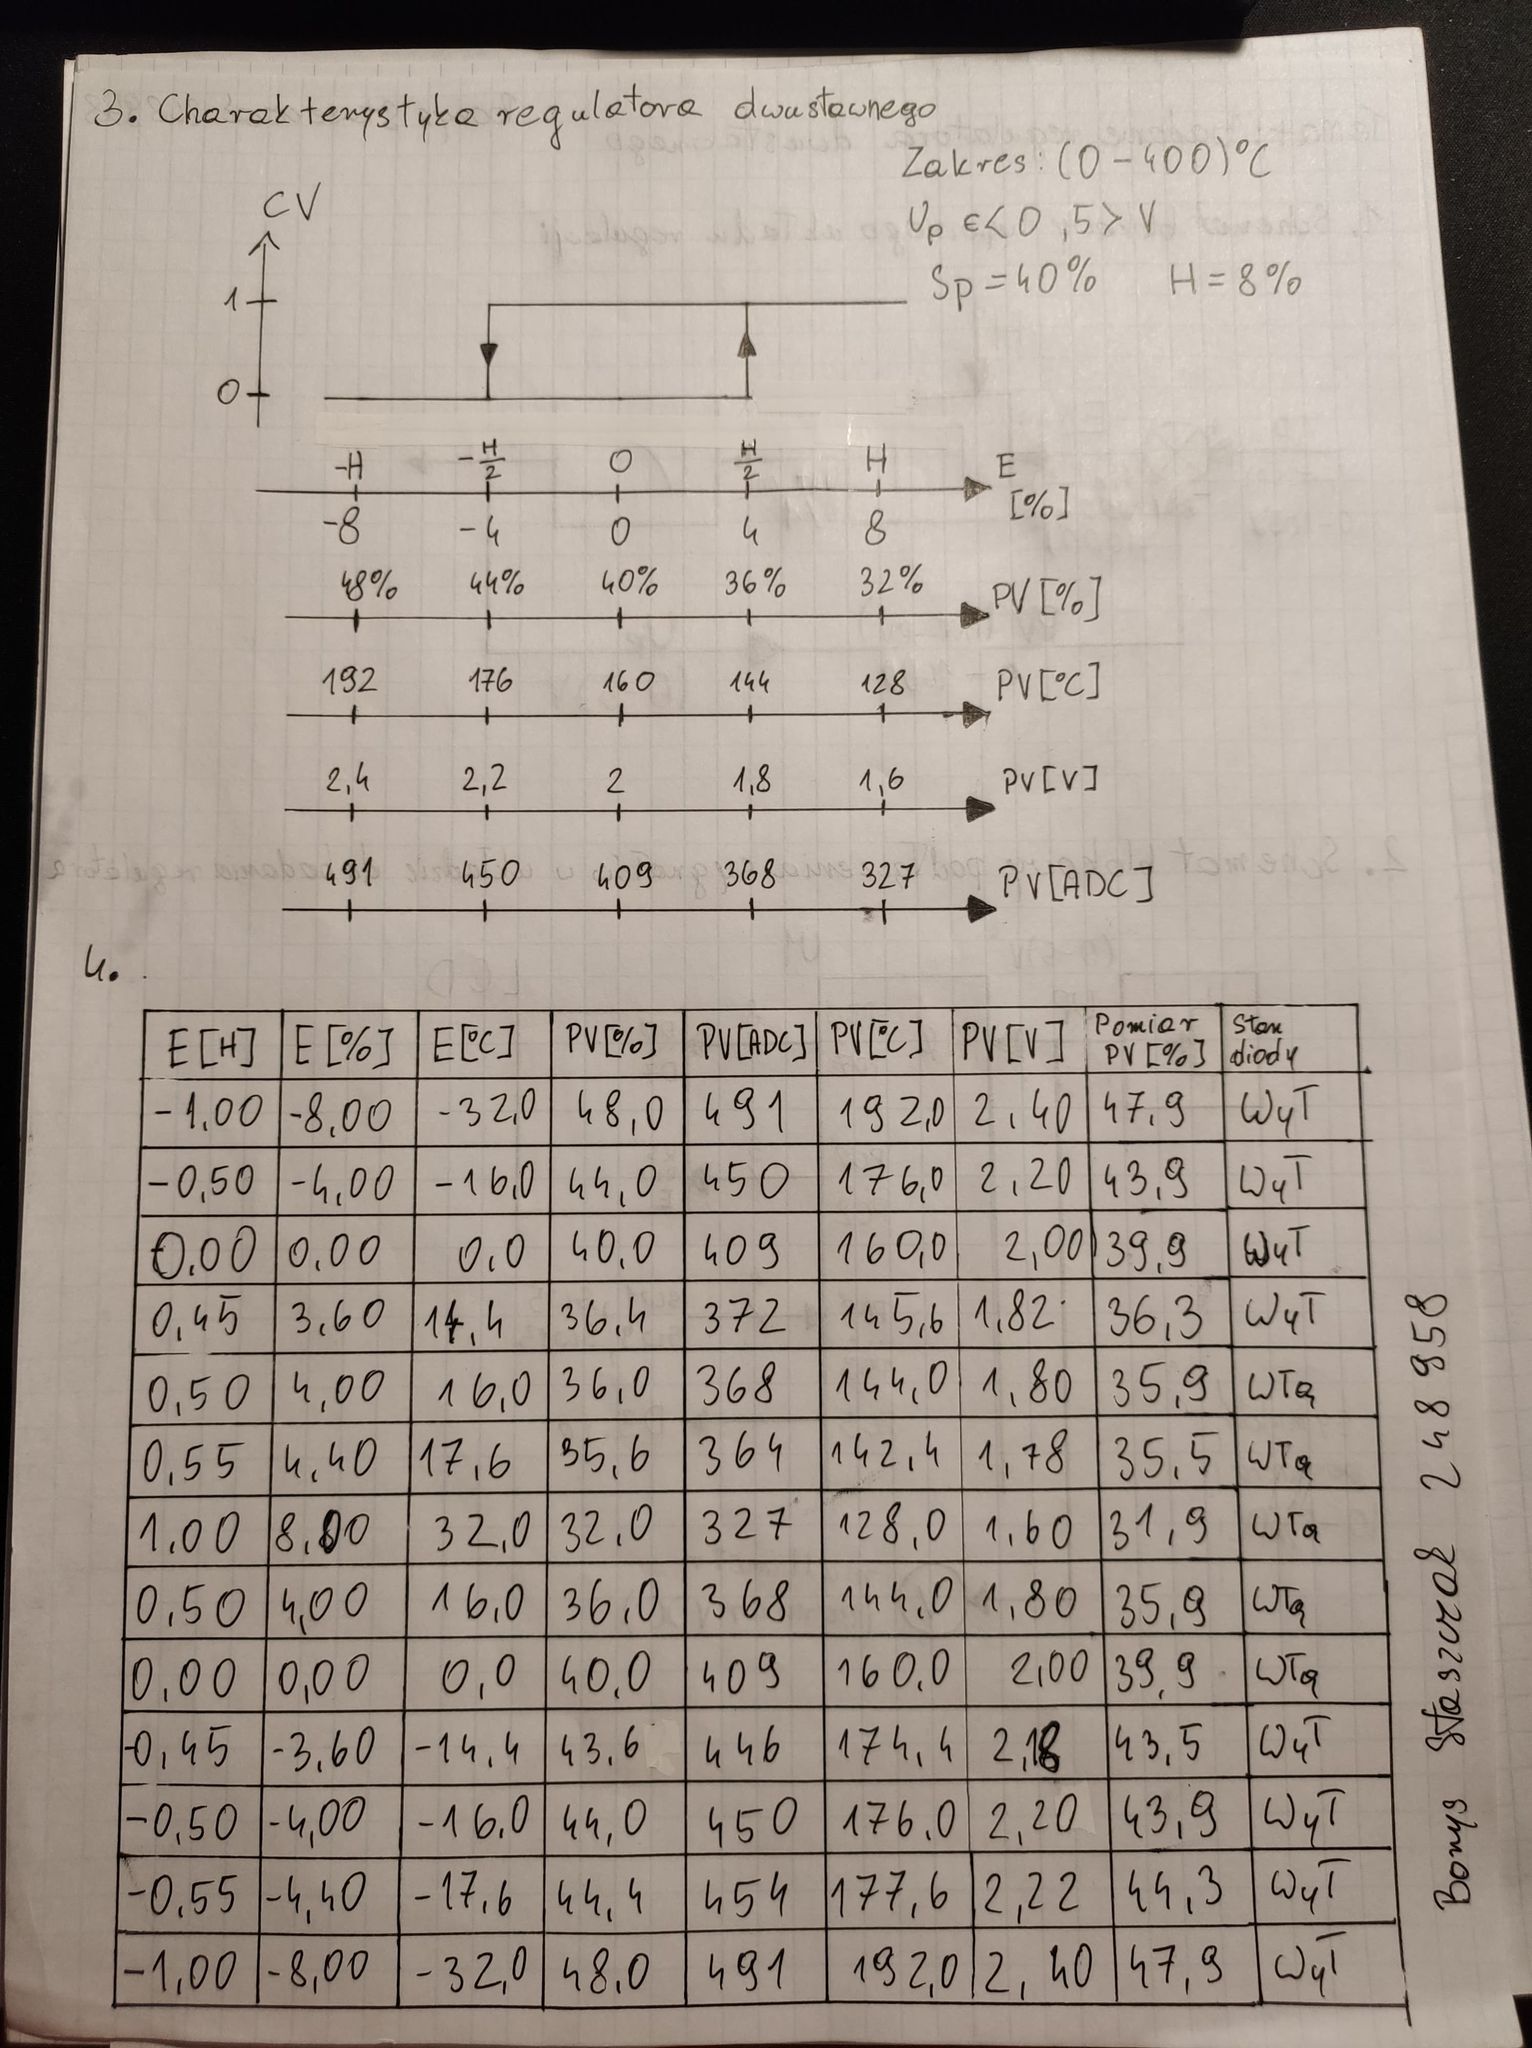 3. Charakterystyka regulatora dwustawnego
Zakres: (0-400)°C
Up ∈<0,5> V
Sp = 40% H = 8%
CV
1
0
-H -H/2 0 H/2 H E
[%]
-8 -4 0 4 8
48% 44% 40% 36% 32% PV[%]
192 176 160 144 128 PV[°C]
2,4 2,2 2 1,8 1,6 PV[V]
491 450 409 368 327 PV[ADC]
4.
E[H] E[%] E[°C] PV[%] PV[ADC] PV[°C] PV[V] Pomiar PV[%] Stan diody
-1,00 -8,00 -32,0 48,0 491 192,0 2,40 47,9 Wył
-0,50 -4,00 -16,0 44,0 450 176,0 2,20 43,9 Wył
0,00 0,00 0,0 40,0 409 160,0 2,00 39,9 Wył
0,45 3,60 14,4 36,4 372 145,6 1,82 36,3 Wył
0,50 4,00 16,0 36,0 368 144,0 1,80 35,9 Włą
0,55 4,40 17,6 35,6 364 142,4 1,78 35,5 Włą
1,00 8,00 32,0 32,0 327 128,0 1,60 31,9 Włą
0,50 4,00 16,0 36,0 368 144,0 1,80 35,9 Włą
0,00 0,00 0,0 40,0 409 160,0 2,00 39,9 Włą
-0,45 -3,60 -14,4 43,6 446 174,4 2,18 43,5 Wył
-0,50 -4,00 -16,0 44,0 450 176,0 2,20 43,9 Wył
-0,55 -4,40 -17,6 44,4 454 177,6 2,22 44,3 Wył
-1,00 -8,00 -32,0 48,0 491 192,0 2,40 47,9 Wył
Borys Staszczak 248958